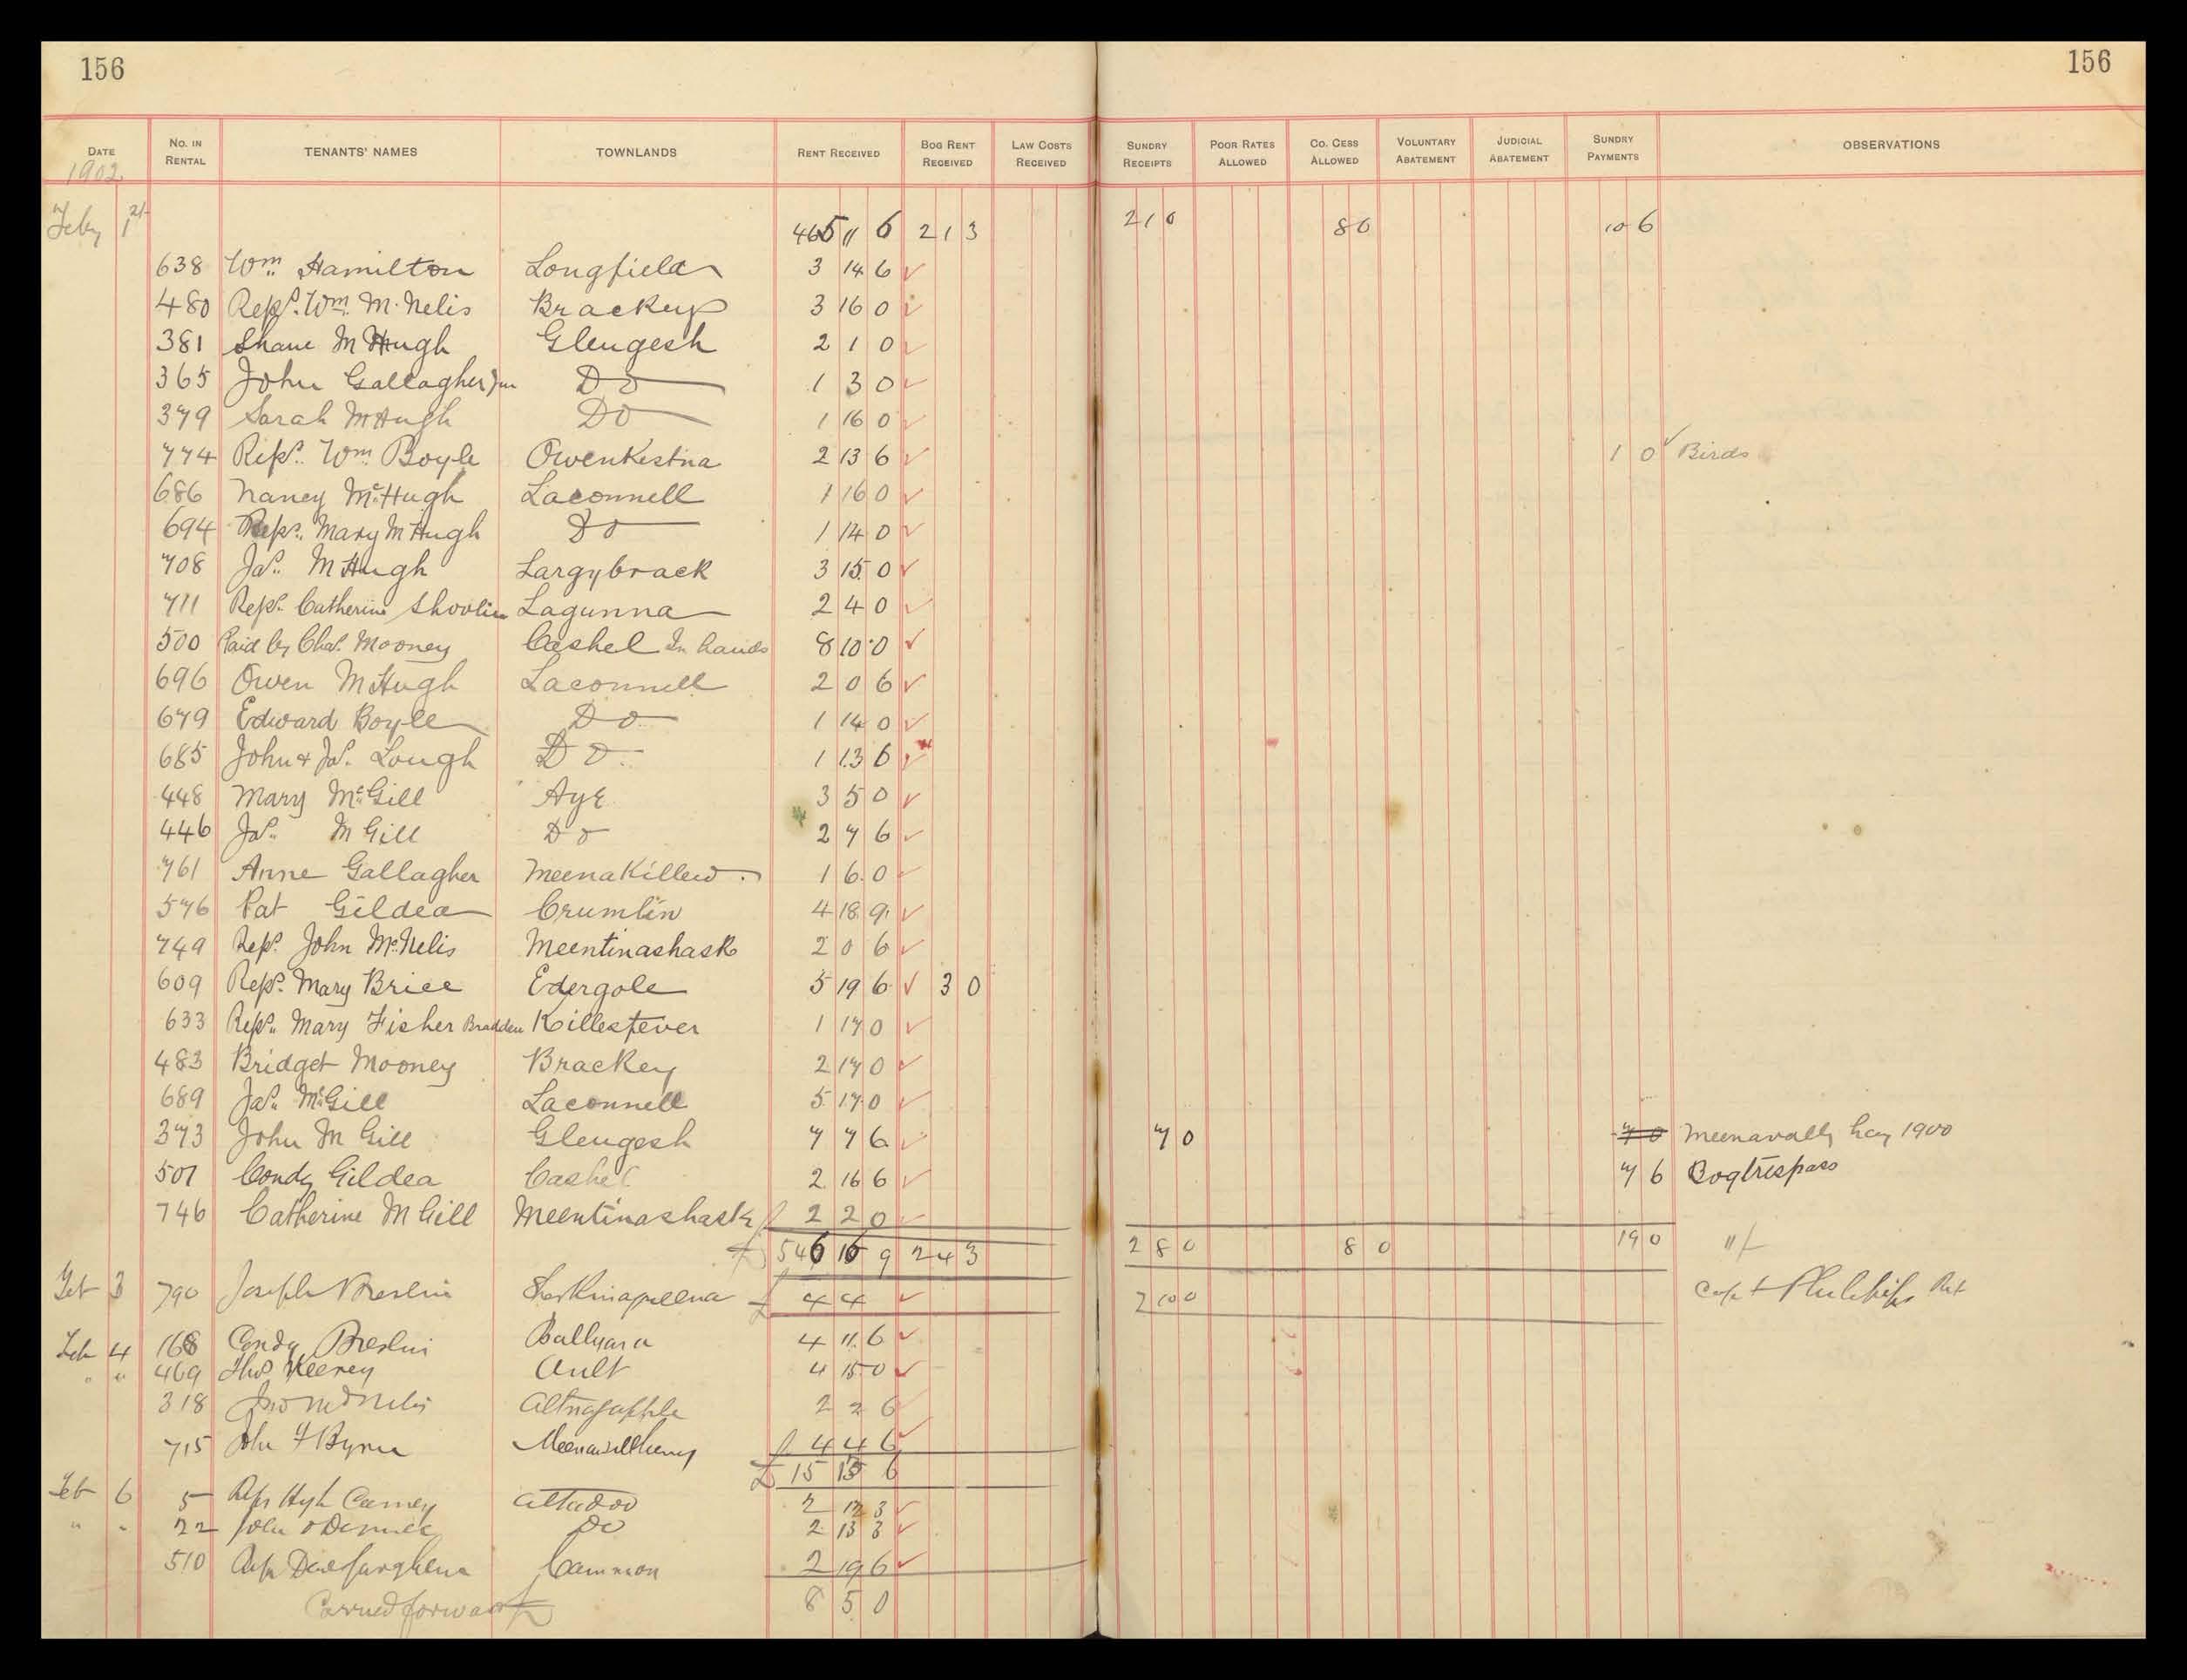 156 156
DATE NO. IN RENTAL TENANTS' NAMES TOWNLANDS RENT RECEIVED BOG RENT RECEIVED LAW COSTS RECEIVED SUNDRY RECEIPTS POOR RATES ALLOWED CO. CESS ALLOWED VOLUNTARY ABATEMENT JUDICIAL ABATEMENT SUNDRY PAYMENTS OBSERVATIONS
1902
Feby 1st 465 11 6 2 1 3 2 1 0 8 0 10 6
638 Wm. Hamilton Longfield 3 14 6
480 Reps. Wm. M. Nelis Brackey 3 16 0
381 Shane M Hugh Glengesh 2 1 0
365 John Gallagher Jun Do 1 3 0
379 Sarah M Hugh Do 1 16 0
774 Reps. Wm Boyle Owenkestna 2 13 6 1 0 Birds
686 Nancy Mc.Hugh Laconnell 1 16 0
694 Reps. Mary M Hugh Do 1 14 0
708 Jas. M Hugh Largybrack 3 15 0
711 Reps. Catherine Shovlin Lagunna 2 4 0
500 Paid by Chas. Mooney Cashel In hands 8 10 0
696 Owen M Hugh Laconnell 2 0 6
679 Edward Boyle Do 1 14 0
685 John & Jas. Lough Do 1 13 6
448 Mary Mc.Gill Aye 3 5 0
446 Jas. M Gill Do 2 7 6
761 Anne Gallagher Meenakillew 1 6 0
576 Pat Gildea Crumlin 4 18 9
749 Reps. John Mc.Nelis Meentinashask 2 0 6
609 Reps. Mary Brice Edergole 5 19 6 3 0
633 Reps. Mary Fisher Bradden Killesfever 1 17 0
483 Bridget Mooney Brackey 2 17 0
689 Jas. Mc.Gill Laconnell 5 17 0
373 John M Gill Glengesh 7 7 6 7 0 7 0 Meenavally hay 1900
507 Condy Gildea Cashel 2 16 6 7 6 Bogtrespass
746 Catherine M Gill Meentinashask 2 2 0
£ 546 16 9 2 4 3 2 8 0 8 0 19 0
Feb 3 790 Joseph Breslin £ 4 4 2 10 0 Capt
Feb 4 168 Condy Breslin Ballyara 4 11 6
" " 469 Thos Keeney Ault 4 15 0
318 Altnagapple 2 2 6
715 John Byrne 4 4 6
£ 15 15 6
Feb 6 5 Reps Hugh Carney Altadoo 2 12 3
" " 22 John Do 2 13 3
510 Reps Cammon 2 19 6
Carried forward £ 8 5 0